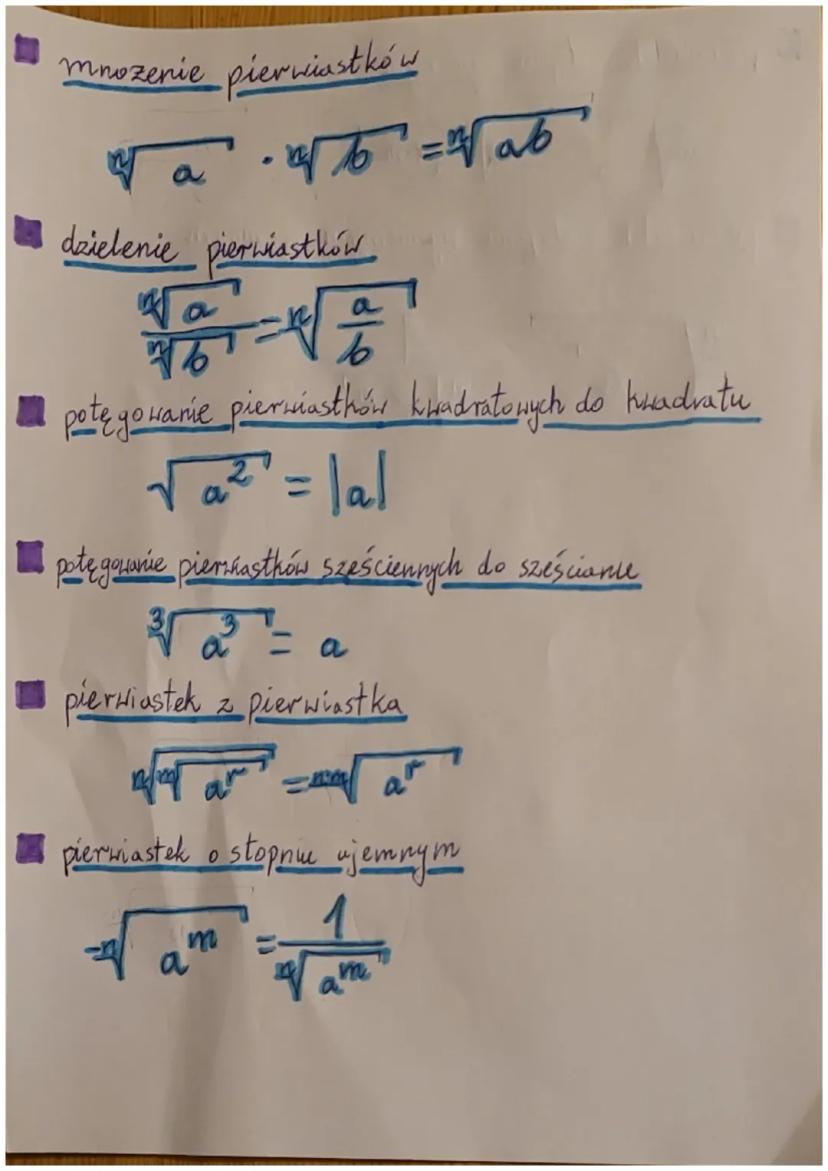 mnożenie pierwiastków
ⁿ√a · ⁿ√b = ⁿ√ab
dzielenie pierwiastków
ⁿ√a / ⁿ√b = ⁿ√(a/b)
potęgowanie pierwiastków kwadratowych do kwadratu
√a² = |a|
potęgowanie pierwiastków sześciennych do sześcianu
³√a³ = a
pierwiastek z pierwiastka
ⁿ√ᵐ√aʳ = ⁿ·ᵐ√aʳ
pierwiastek o stopniu ujemnym
⁻ⁿ√aᵐ = 1 / ⁿ√aᵐ